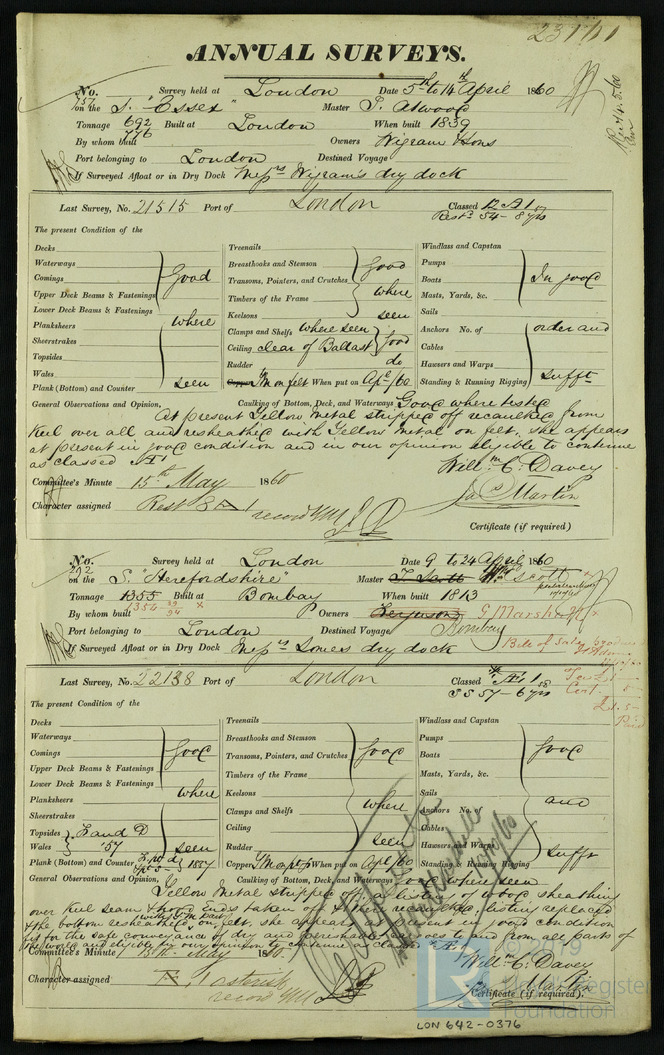 23111
ANNUAL SURVEYS.
No. 757 Survey held at London Date 5th to 14th April 1860
on the S. "Essex" Master J. Atwood
Tonnage 692 776 Built at London When built 1839
By whom built Owners Wigram & Sons
Port belonging to London Destined Voyage
If Surveyed Afloat or in Dry Dock Messrs Wigram's dry dock
Last Survey, No. 21515 Port of London Classed 12 A 1
Restd 54 - 8 yrs
The present Condition of the
Decks Treenails Windlass and Capstan
Waterways Breasthooks and Stemson Pumps
Comings Good Transoms, Pointers, and Crutches Good Boats In good
Upper Deck Beams & Fastenings Timbers of the Frame where Masts, Yards, &c.
Lower Deck Beams & Fastenings Keelsons seen Sails
Planksheers where Clamps and Shelfs where seen Anchors No. of order and
Sheerstrakes Ceiling clear of Ballast good Cables
Topsides Rudder do Hawsers and Warps
Wales Copper YM on felt When put on Apl/60 Standing & Running Rigging sufft
Plank (Bottom) and Counter seen
General Observations and Opinion, Caulking of Bottom, Deck, and Waterways Good where tested
At present Yellow metal stripped off recaulked from
Keel over all and resheathed with Yellow Metal on felt, she appears
at present in good condition and in our opinion eligible to continue
as classed Æ 1
Willm C. Davey
Committee's Minute 15th May 1860
Jas Martin
Character assigned Rest 8 Æ 1 record YM
Certificate (if required)
No. 292 Survey held at London Date 9 to 24 April 1860
on the S. "Herefordshire" Master J. Scott Wm Scott
Tonnage 1355 Built at Bombay When built 1813
1354 29/94
By whom built Owners Ferguson G Marshall
Port belonging to London Destined Voyage Bombay
If Surveyed Afloat or in Dry Dock Messrs Somes dry dock
Last Survey, No. 22138 Port of London Classed Æ 1 58
SS 57 - 6 yrs
The present Condition of the
Decks Treenails Windlass and Capstan
Waterways Breasthooks and Stemson Pumps
Comings good Transoms, Pointers, and Crutches good Boats good
Upper Deck Beams & Fastenings Timbers of the Frame Masts, Yards, &c.
Lower Deck Beams & Fastenings Keelsons Sails
Planksheers where Clamps and Shelfs where Anchors No. of and
Sheerstrakes Ceiling Cables
Topsides F and D Rudder seen Hawsers and Warps
Wales '57 seen Copper YM on felt When put on Apl/60 Standing & Running Rigging sufft
Plank (Bottom) and Counter 1857
General Observations and Opinion, Caulking of Bottom, Deck, and Waterways good where seen
Yellow Metal stripped off, a listing of wood sheathing
over Keel seams & hood Ends taken off & then recaulked, listing replaced
& the bottom resheathed with YM part on felt, she appears at present in good condition
fit for the safe conveyance of dry and perishable cargoes to and from all parts of
the world and eligible in our opinion to continue as classed Æ 1
Committee's Minute 15th May 1860
Willm C. Davey
Jas Martin
Character assigned Æ 1 asterisk
record YM
Certificate (if required).
2019
Lloyd's Register
Foundation
LON 642-0376